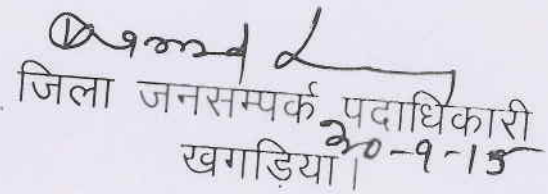 जिला जनसम्पर्क पदाधिकारी
खगड़िया।
30-9-15